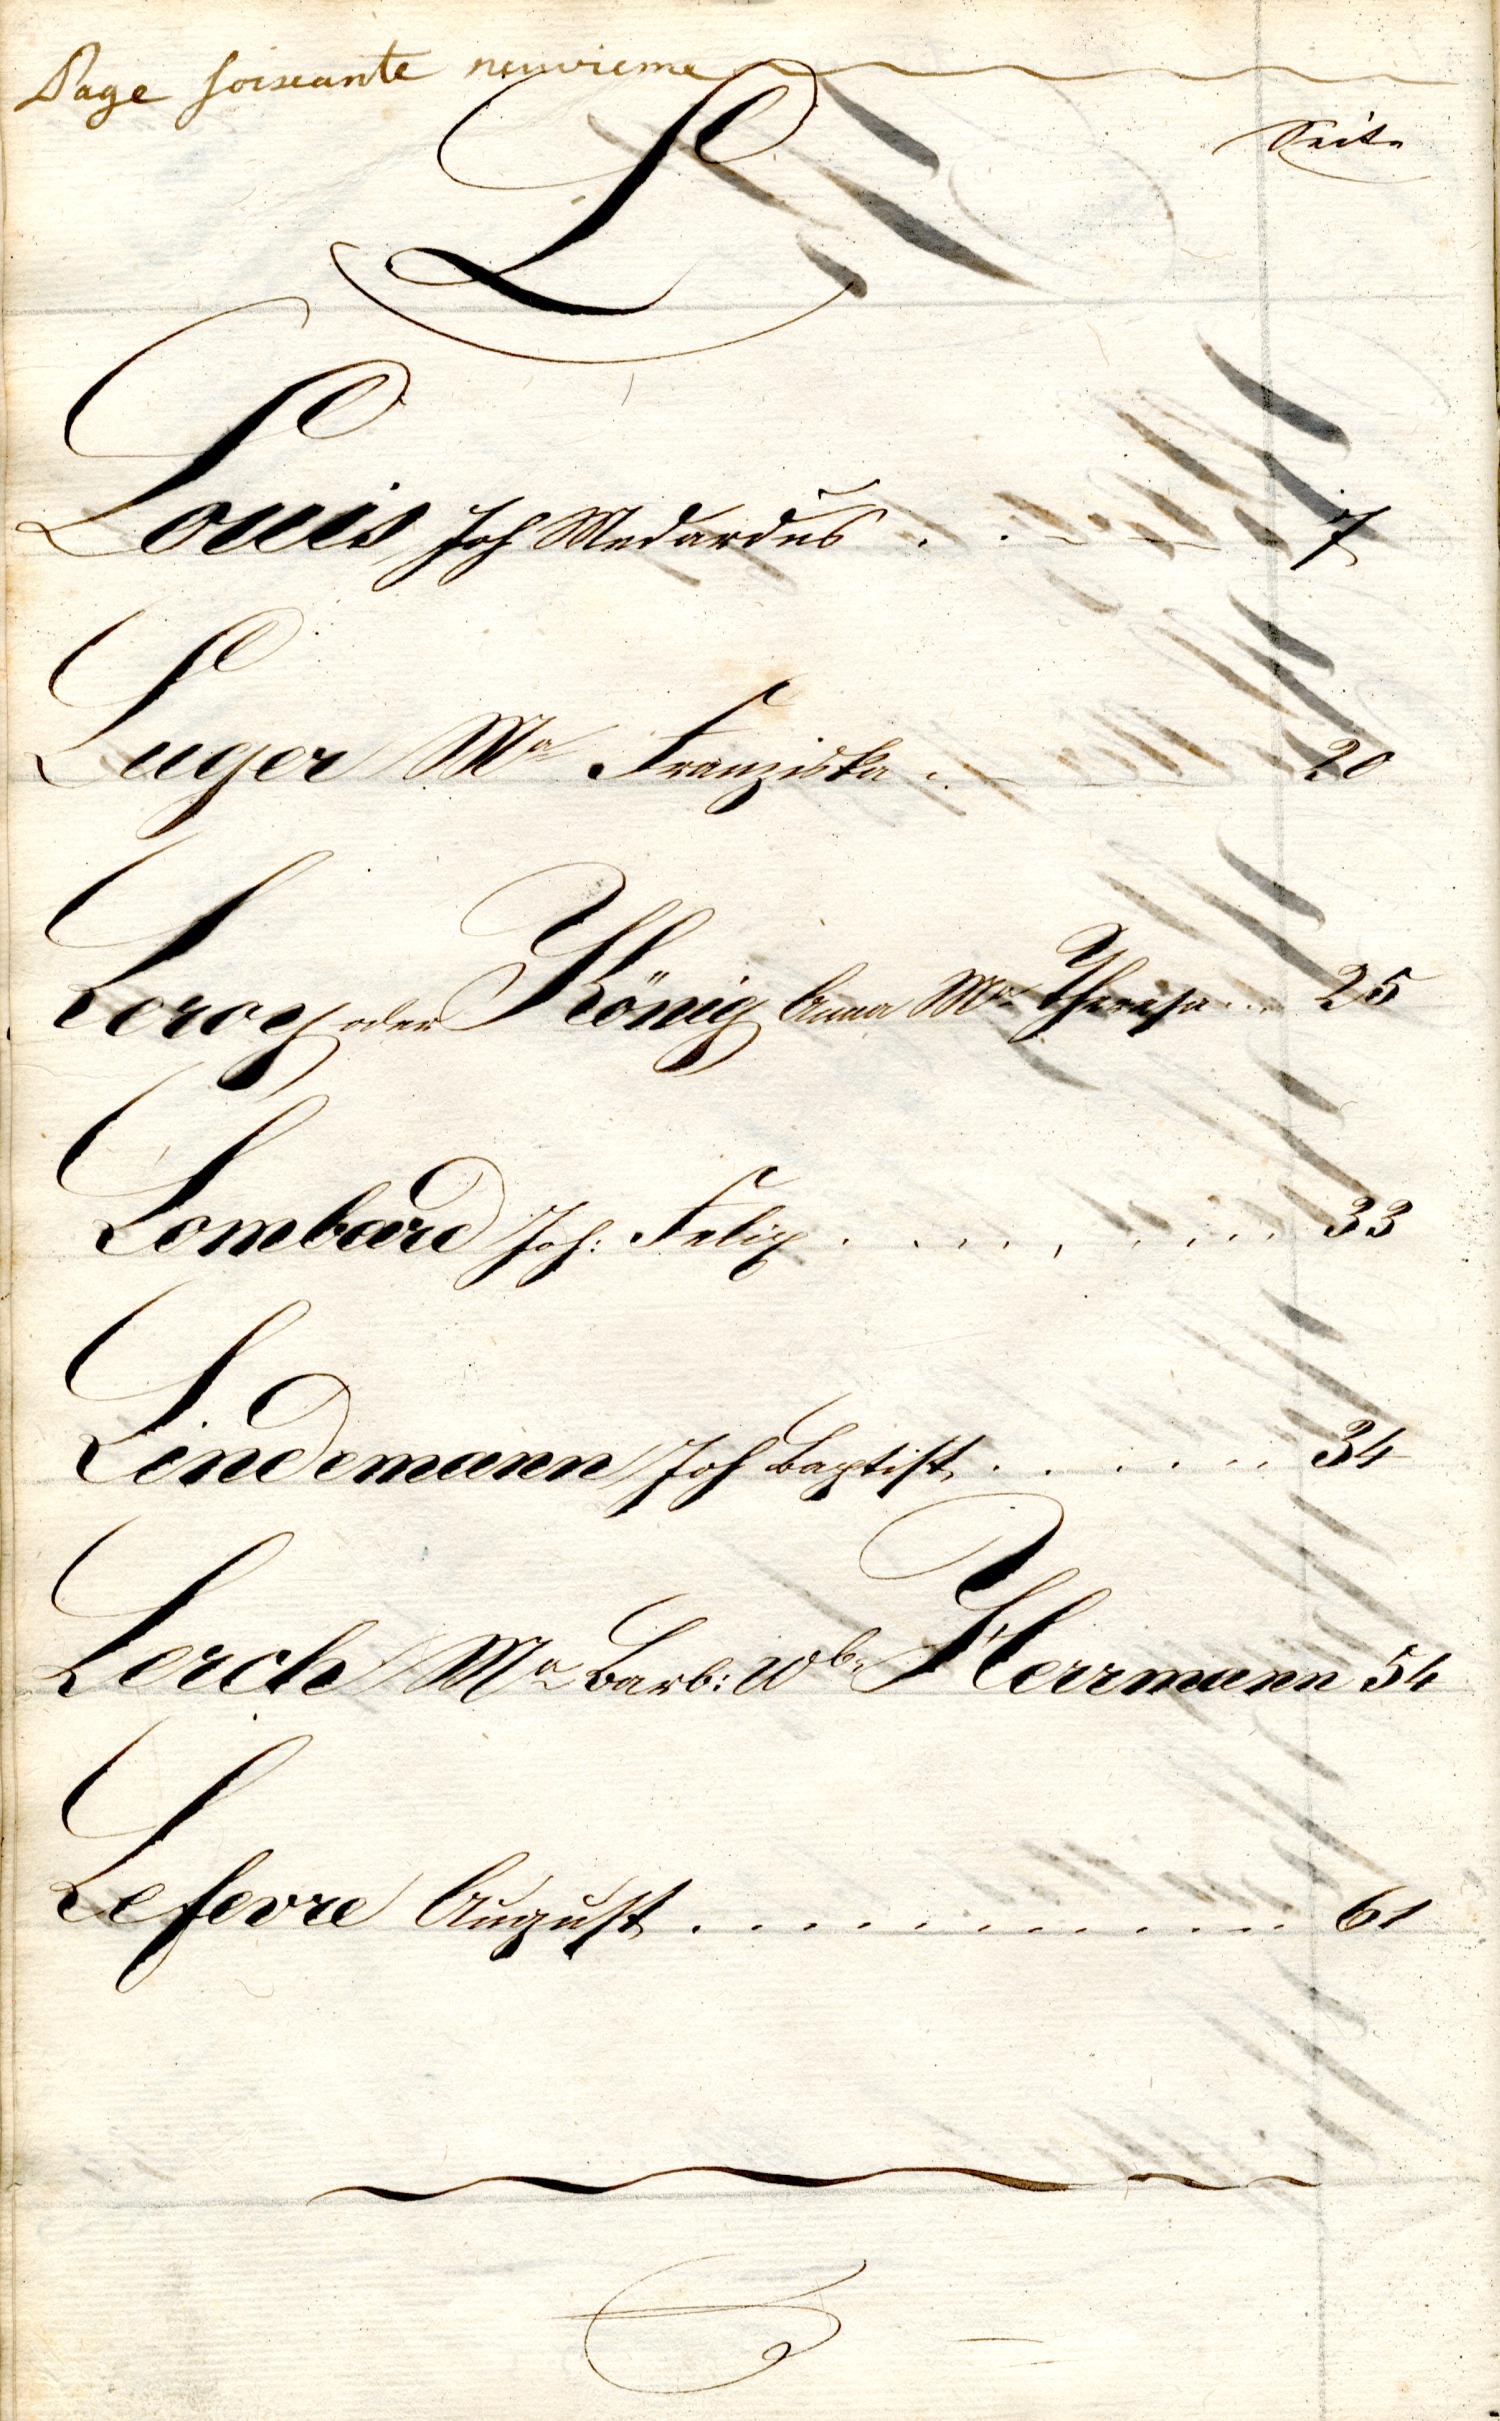 Page soixante neuvieme
Seite
L
Louis Joh Medardus . . 7
Luger Ma Franziska . . 20
Leroy oder König Anna Ma Theresa ... 25
Lombard Joh: Felix . . . . . . . . . 33
Lindemann Joh Baptist . . . . . . . 34
Lerch Ma Barb: Wb: Herrmann 54
Lefevre August . . . . . . . . . . . . . 61